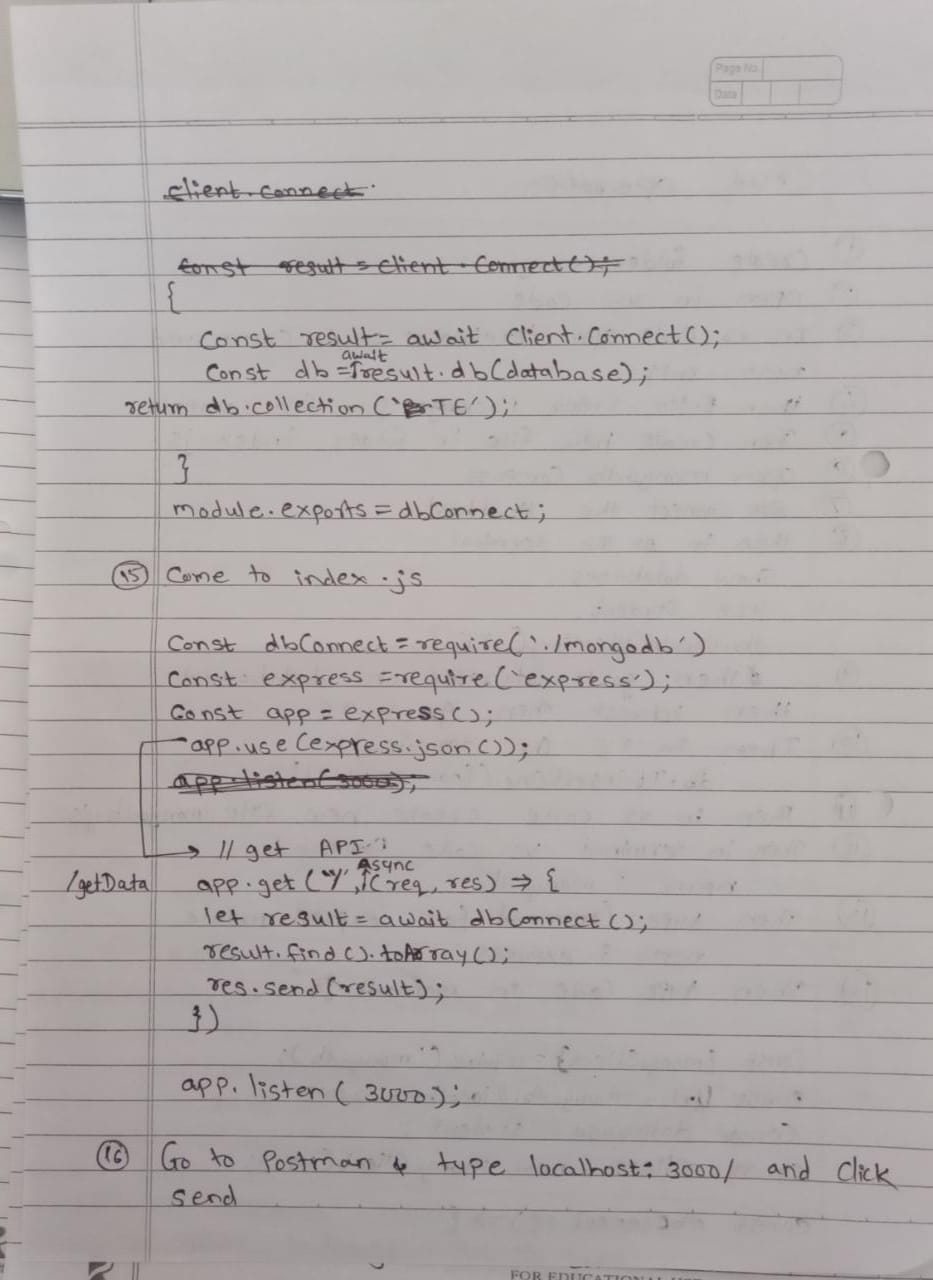 Page No.
Date
client.connect.
const result = client.connect();
{
Const result = await Client.Connect();
await
Const db = result.db(database);
return db.collection('TE');
}
module.exports = dbConnect;
15 Come to index.js
Const dbConnect = require('./mongodb')
Const express = require('express');
Const app = express();
app.use(express.json());
app.listen(3000);
→ // get API
Async
/getData app.get('/', (req, res) => {
let result = await dbConnect();
result.find().toArray();
res.send(result);
})
app.listen(3000);
16 Go to Postman & type localhost:3000/ and Click
send
FOR EDUCATIONAL USE